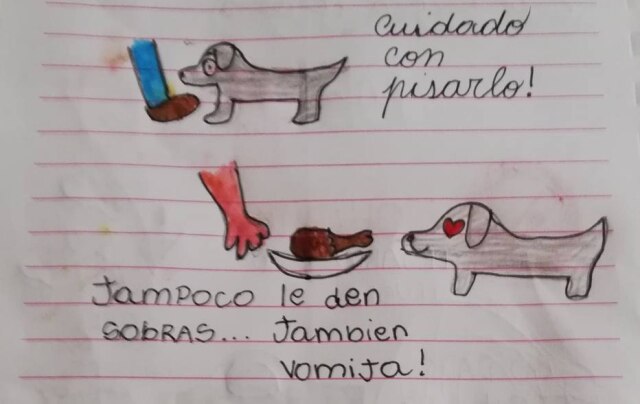 cuidado
con
pisarlo!
Tampoco le den
sobras... Tambien
vomita!